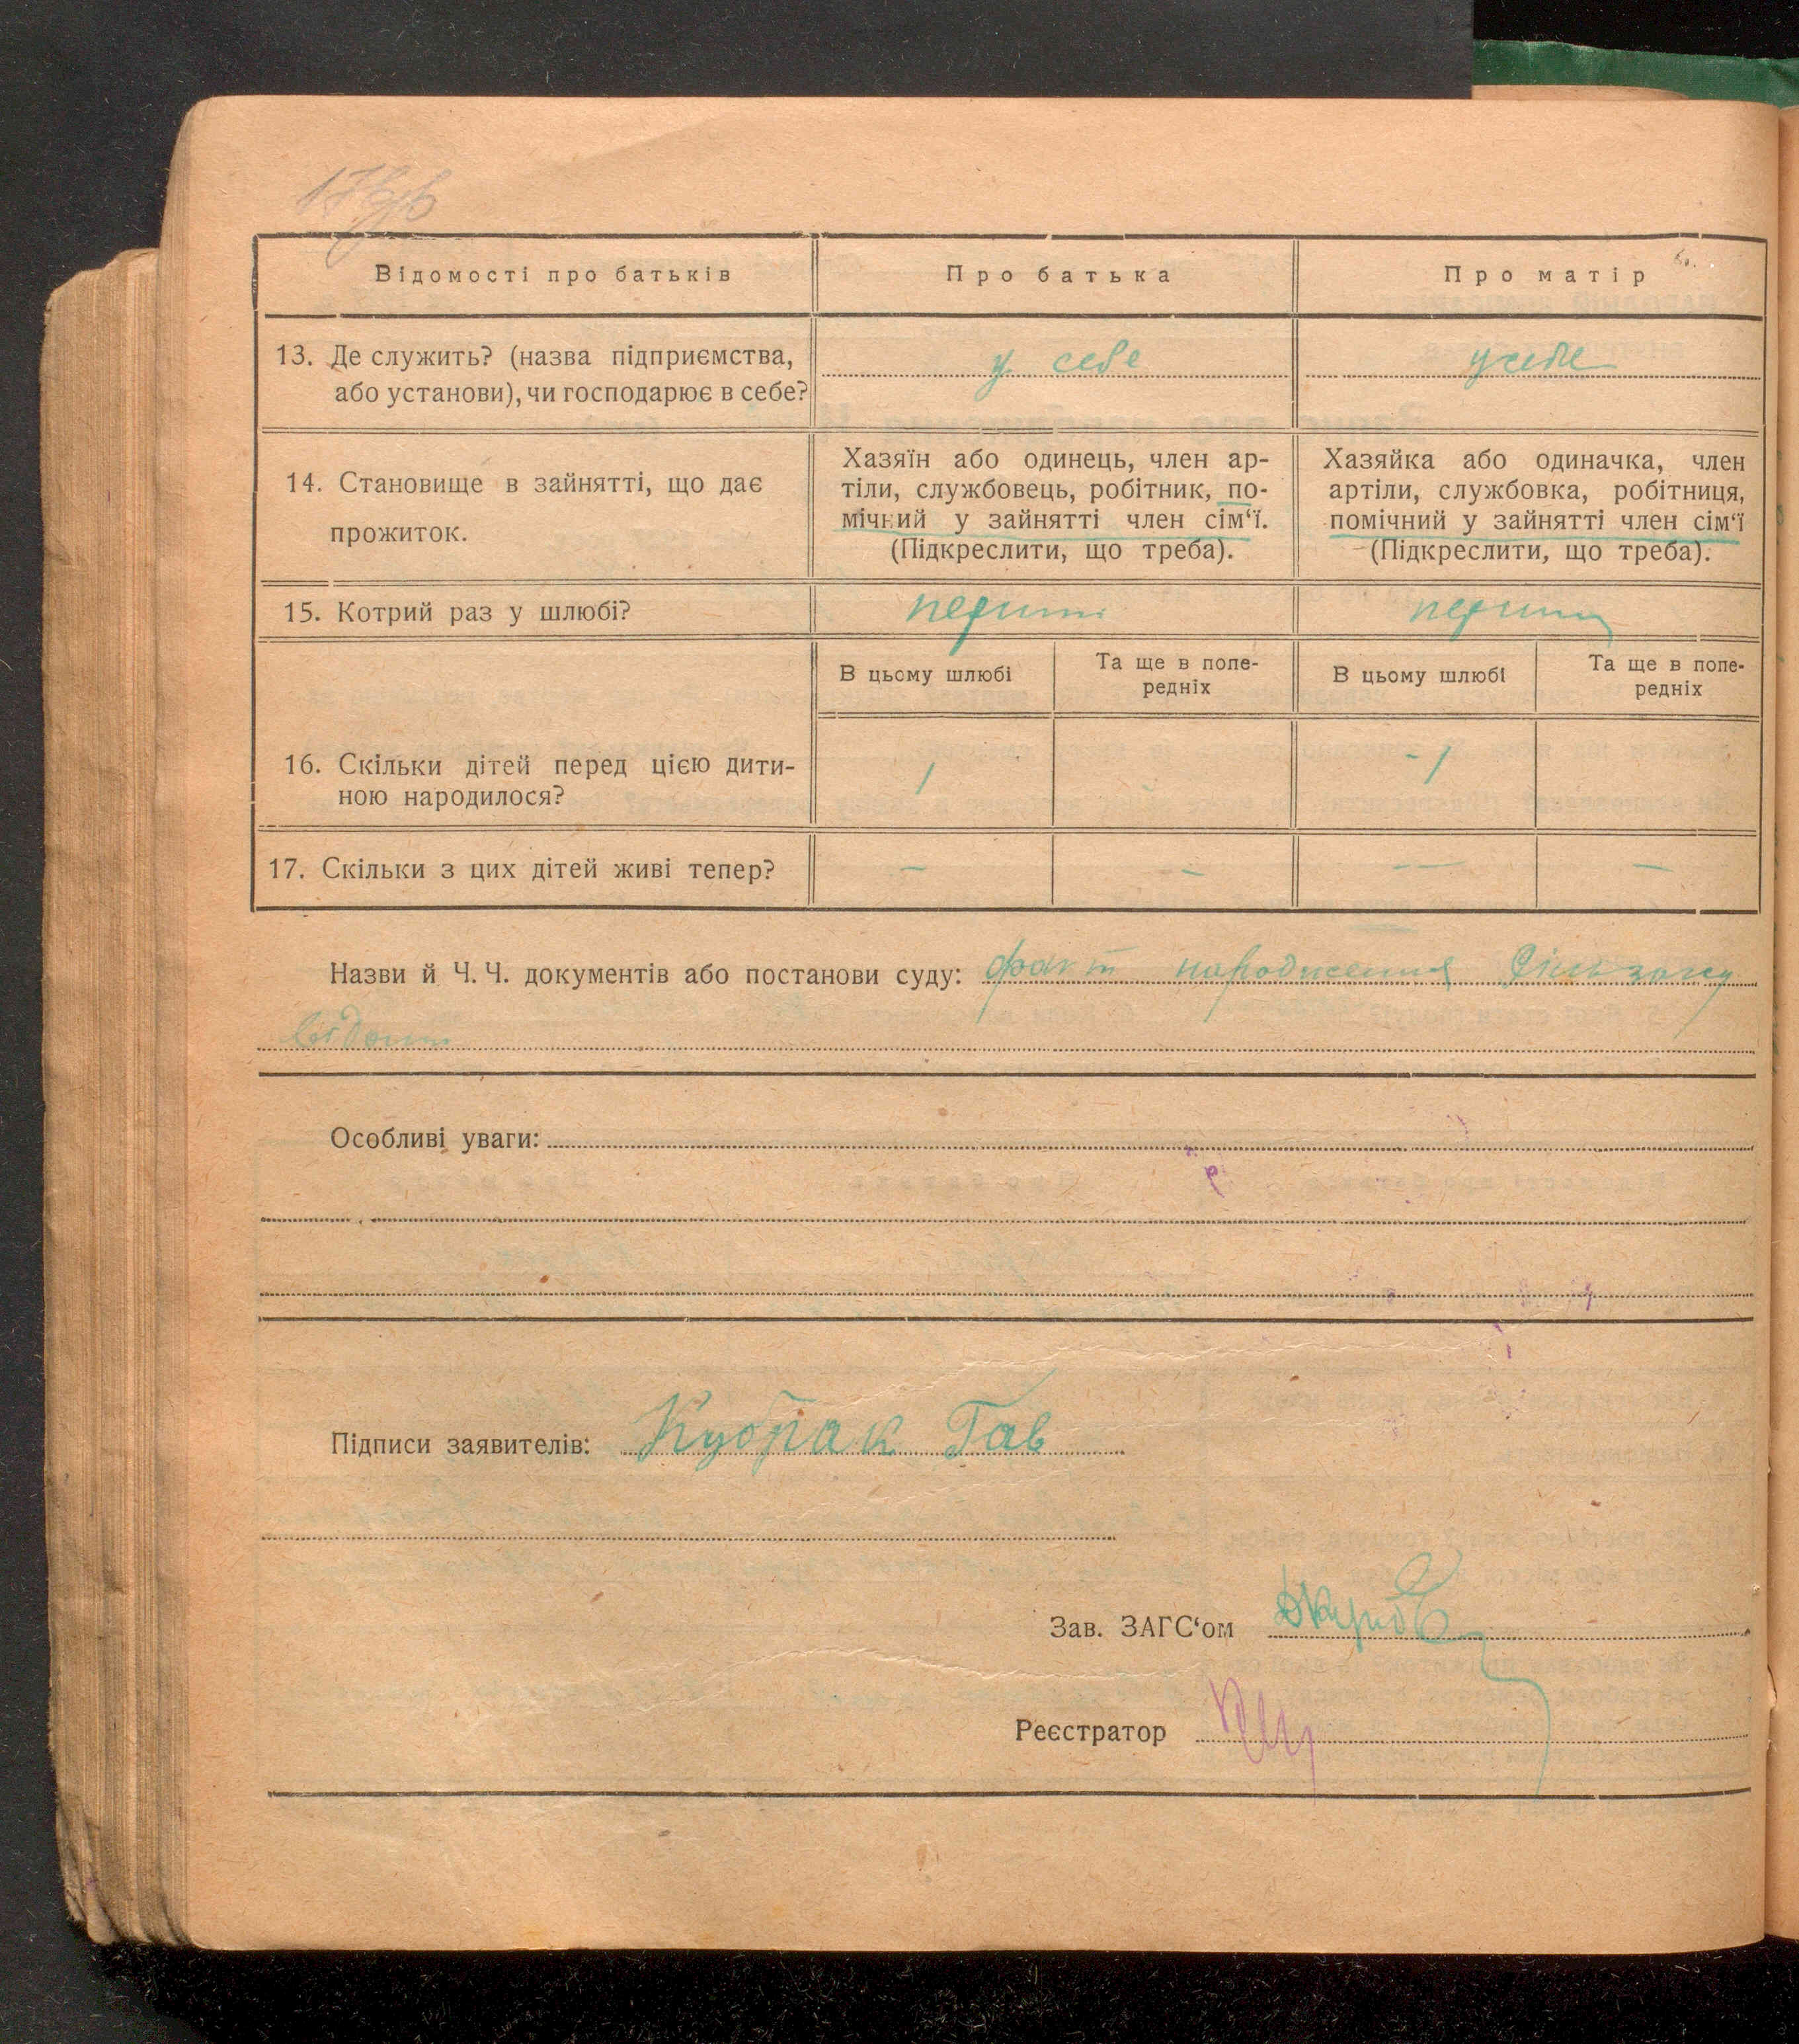 Відомості про батьків
Про батька
Про матір
13. Де служить? (назва підприємства,
або установи), чи господарює в себе?
у себе
у себе
14. Становище в зайнятті, що дає
прожиток.
Хазяїн або одинець, член ар-
тіли, службовець, робітник, по-
мічний у зайнятті член сім‘ї.
(Підкреслити, що треба).
Хазяйка або одиначка, член
артіли, службовка, робітниця,
помічний у зайнятті член сім‘ї
(Підкреслити, що треба).
15. Котрий раз у шлюбі?
перший
перший
В цьому шлюбі
Та ще в попе-
редніх
В цьому шлюбі
Та ще в попе-
редніх
16. Скільки дітей перед цією дити-
ною народилося?
1
- 1
17. Скільки з цих дітей живі тепер?
—
—
— —
—
Назви й Ч. Ч. документів або постанови суду: факт народження
Особливі уваги:
Підписи заявителів: Кубрак Гав
Зав. ЗАГС‘ом
Реєстратор